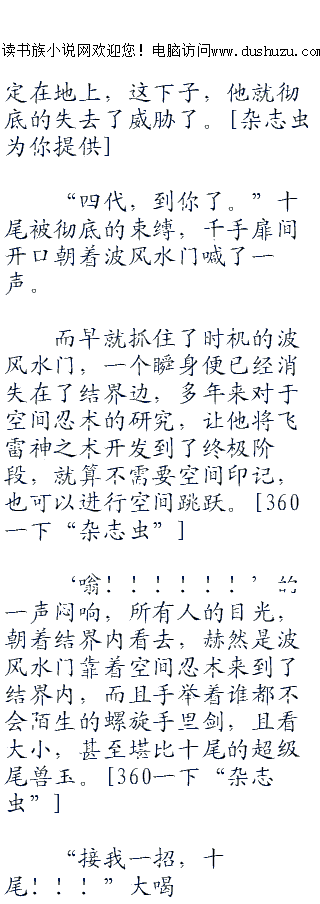 读书族小说网欢迎您！电脑访问www.dushuzu.com
定在地上，这下子，他就彻
底的失去了威胁了。[杂志虫
为你提供]
“四代，到你了。”十
尾被彻底的束缚，千手扉间
开口朝着波风水门喊了一
声。
而早就抓住了时机的波
风水门，一个瞬身便已经消
失在了结界边，多年来对于
空间忍术的研究，让他将飞
雷神之术开发到了终极阶
段，就算不需要空间印记，
也可以进行空间跳跃。[360
一下“杂志虫”]
‘嗡！！！！！！’的
一声闷响，所有人的目光，
朝着结界内看去，赫然是波
风水门靠着空间忍术来到了
结界内，而且手举着谁都不
会陌生的螺旋手里剑，且看
大小，甚至堪比十尾的超级
尾兽玉。[360一下“杂志
虫”]
“接我一招，十
尾！！！”大喝